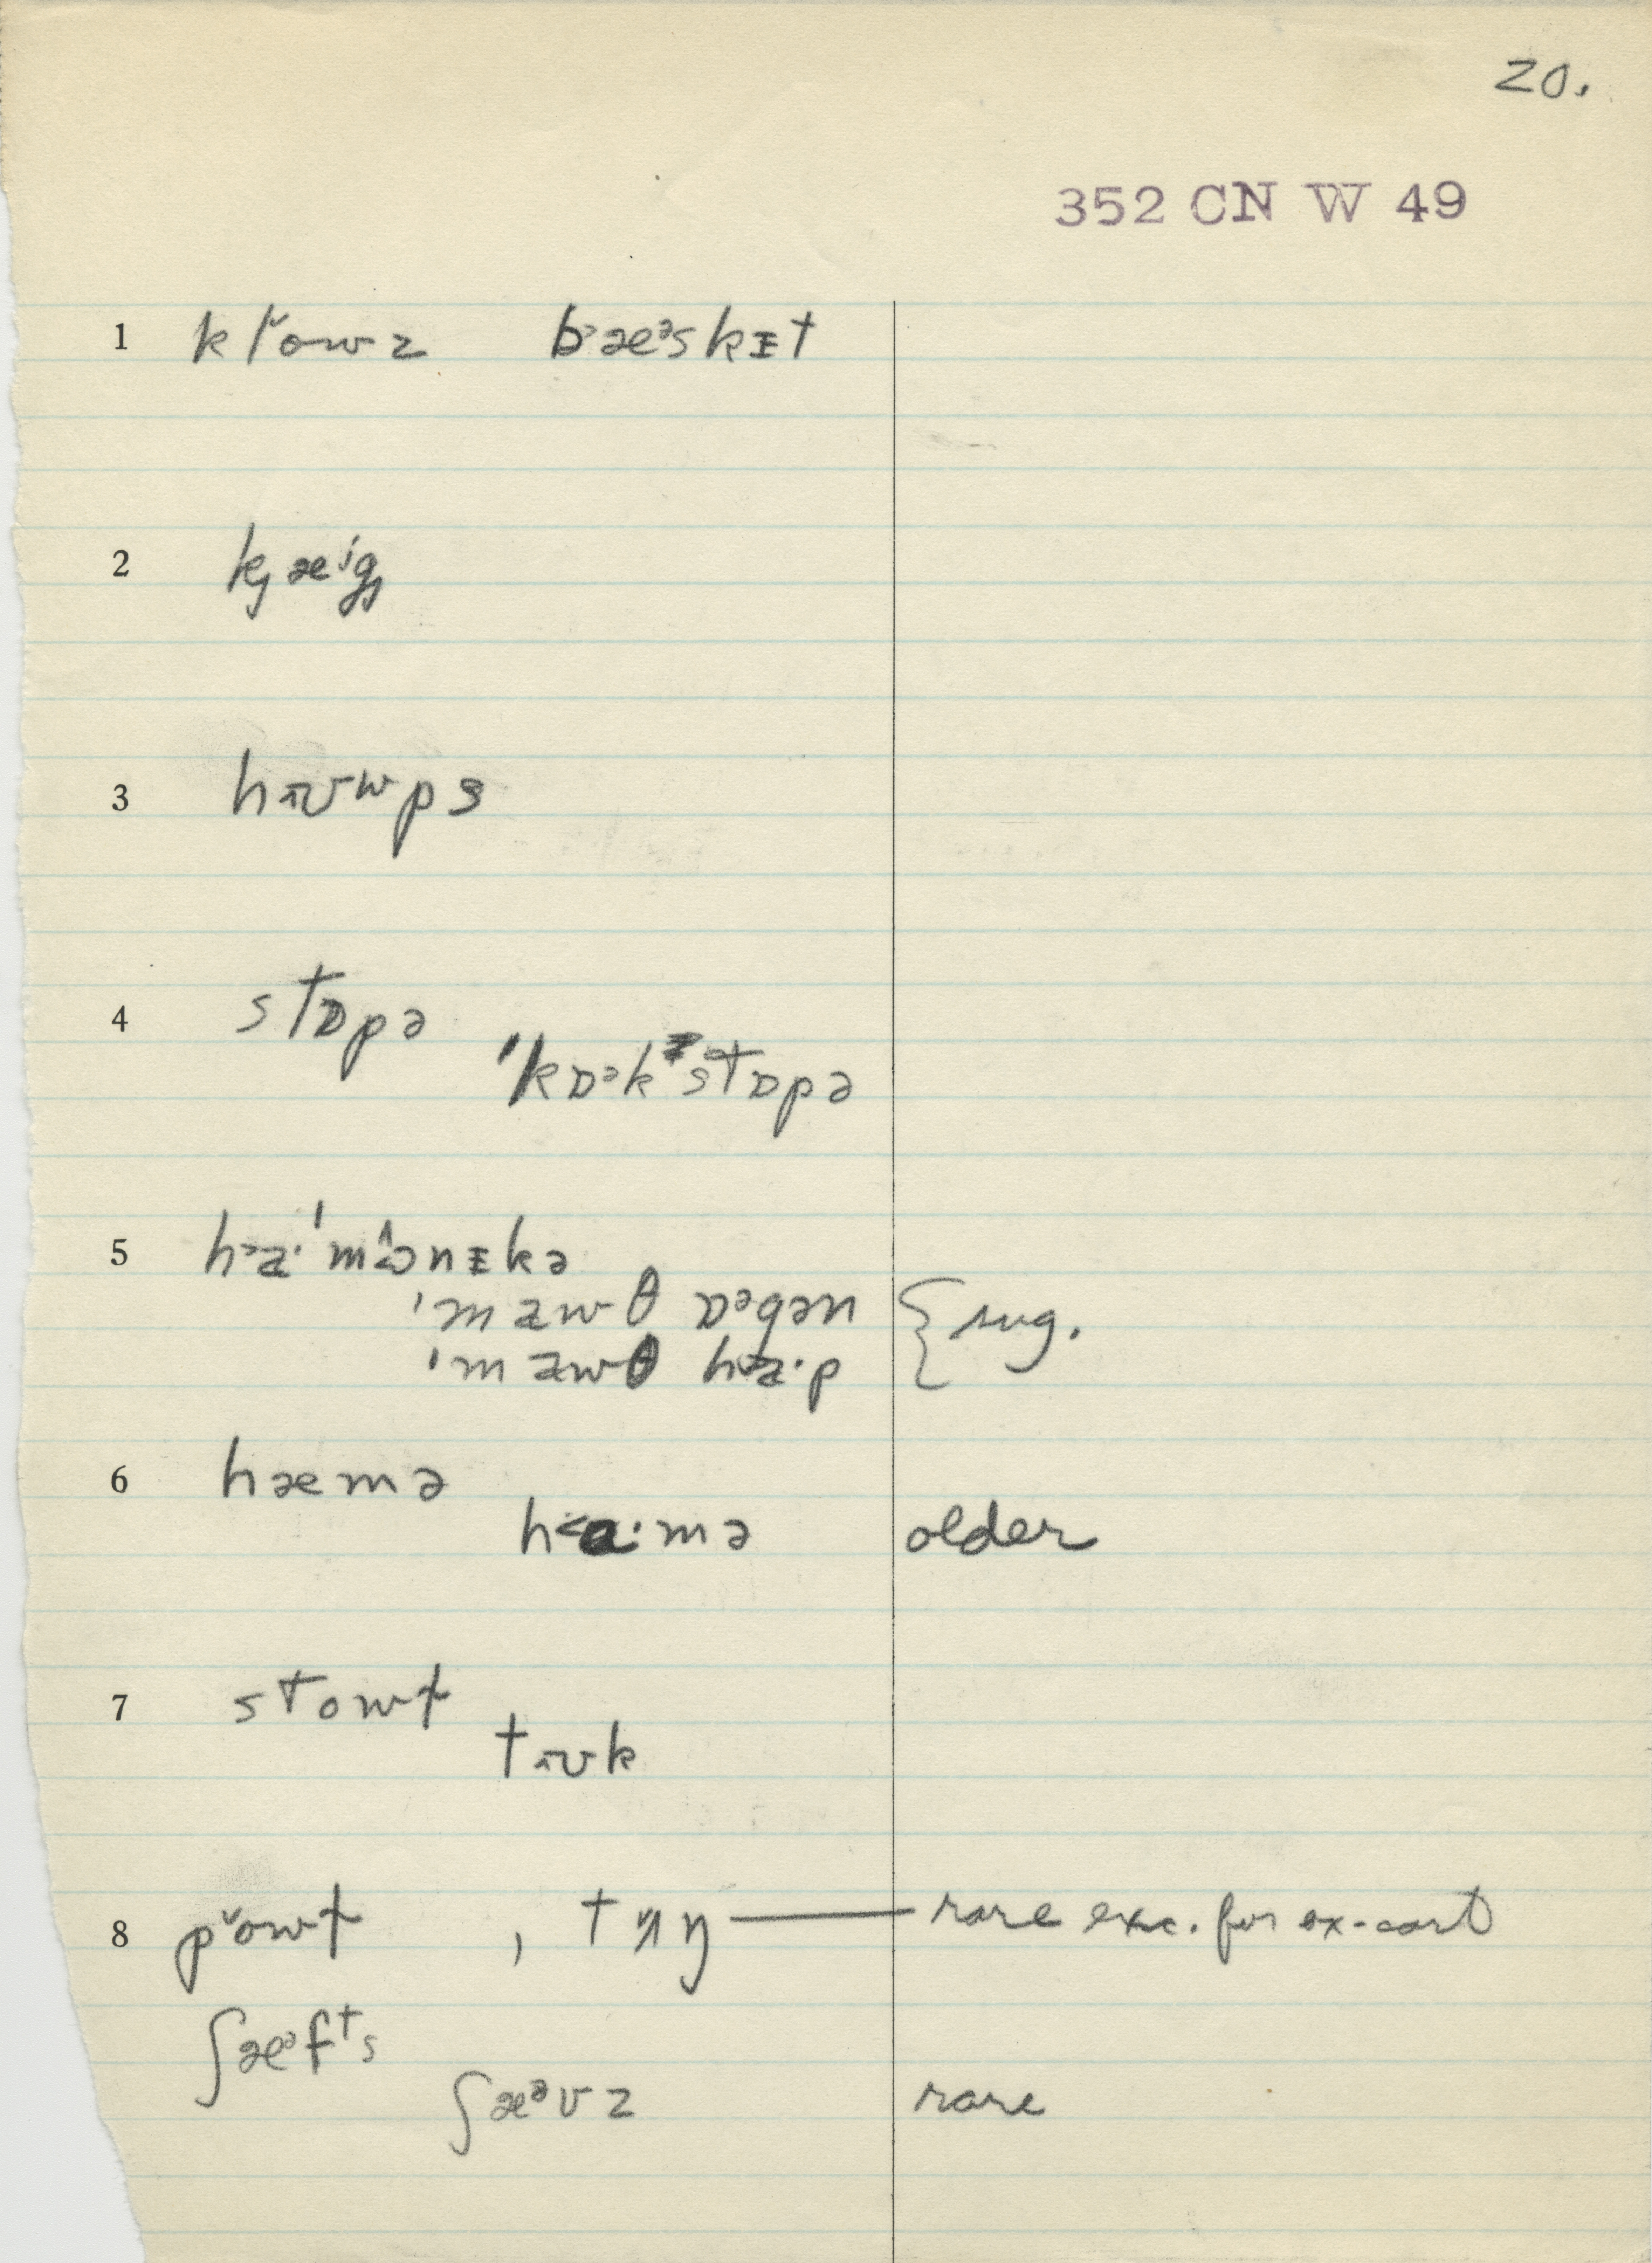 20.
352 CN W 49
1 kl̆owz b˃æᵊskɪt
2 k̡æⁱg̡
3 hʊ̜ʷps
4 stɒpə
ˈkɒᵊkstɒpə
5 h˃a·ˈmɔ̂nɪkə
ˈmawθ ɒᵊgən { sug.
ˈmawθ h˃a·p
6 hæmə
h˂a·mə older
7 stowɫ
tʊk
8 p̆owɫ , tʌŋ — rare exc. for ox-cart
ʃæᵊfᵗs
ʃæᵊvz rare